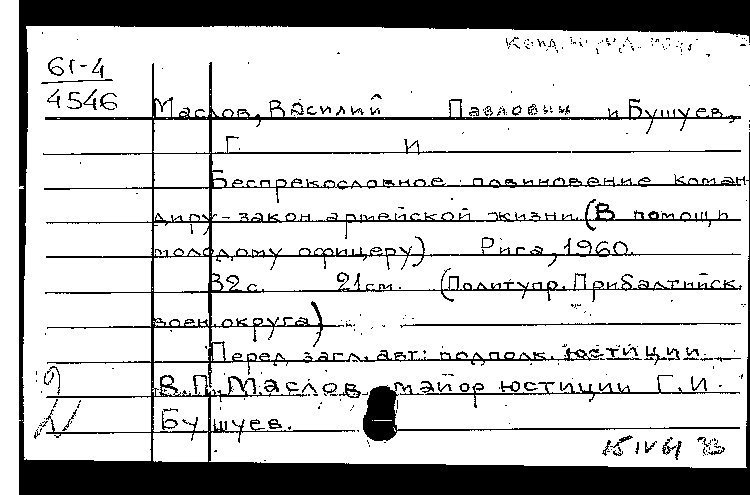 61-4
4546
Маслов, Василий Павлович и Бушуев,
Г. И.
Беспрекословное повиновение коман
диру-закон армейской жизни. (В помощь
молодому офицеру). Рига, 1960.
32 с. 21 см. (Политупр. Прибалтийск.
воен. округа)
Перед загл. авт.: подполк. юстиции
В.П. Маслов, майор юстиции Г.И.
Бушуев.
2
15 IV 61